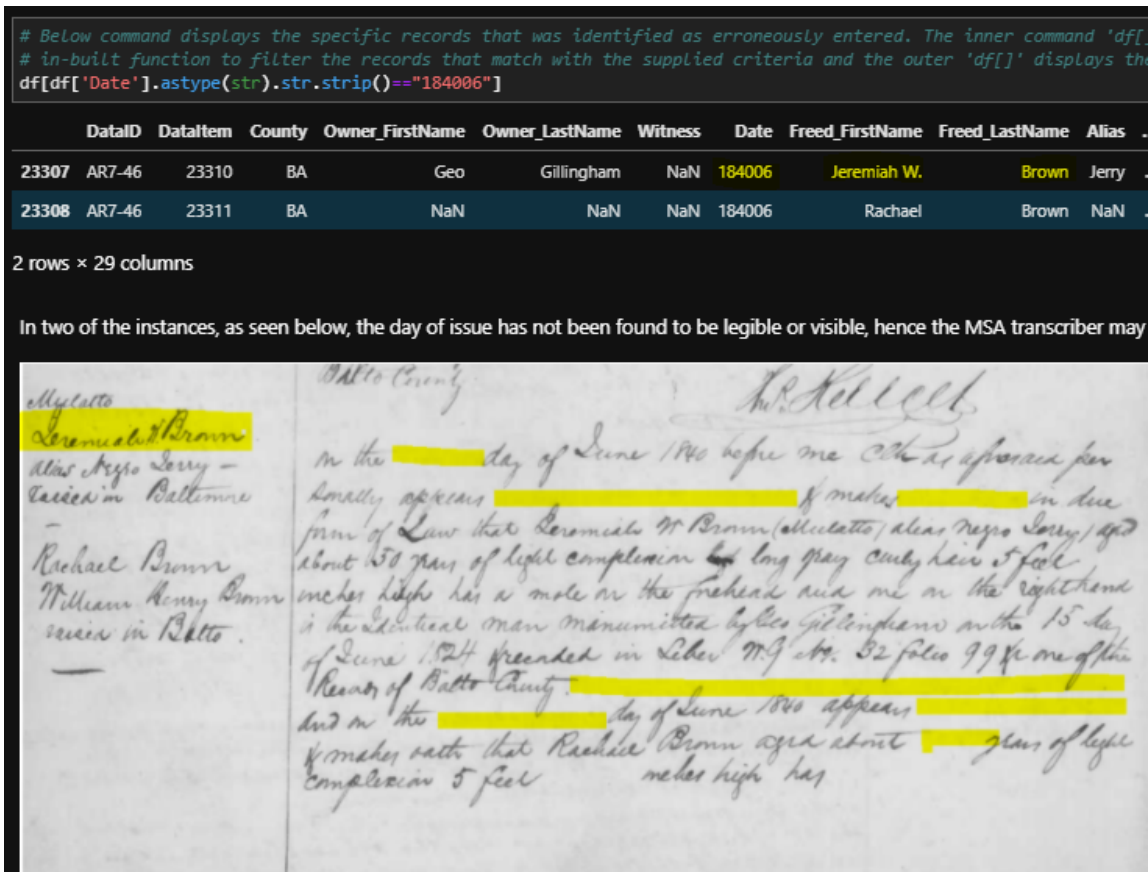 # Below command displays the specific records that was identified as erroneously entered. The inner command 'df[
# in-built function to filter the records that match with the supplied criteria and the outer 'df[]' displays the
df[df['Date'].astype(str).str.strip()=="184006"]
DataID DataItem County Owner_FirstName Owner_LastName Witness Date Freed_FirstName Freed_LastName Alias .
23307 AR7-46 23310 BA Geo Gillingham NaN 184006 Jeremiah W. Brown Jerry .
23308 AR7-46 23311 BA NaN NaN NaN 184006 Rachael Brown NaN .
2 rows × 29 columns
In two of the instances, as seen below, the day of issue has not been found to be legible or visible, hence the MSA transcriber may
Mulatto
Jeremiah W Brown
alias Negro Jerry –
raised in Baltimore
–
Rachael Brown
William Henry Brown
raised in Balto.
Balto County
on the day of June 1840 before me Clk as aforesaid per
sonally appears & makes in due
form of Law that Jeremiah W Brown (Mulatto) alias Negro Jerry) aged
about 50 years of light complexion long gray curly hair 5 feet
inches high has a mole on the forehead and one on the right hand
is the identical man manumitted by Geo Gillingham on the 15 day
of June 1824 & recorded in Liber W.G No. 32 folio 99 &c one of the
Records of Balto County.
and on the day of June 1840 appears
& makes oath that Rachael Brown aged about years of light
complexion 5 feet inches high has